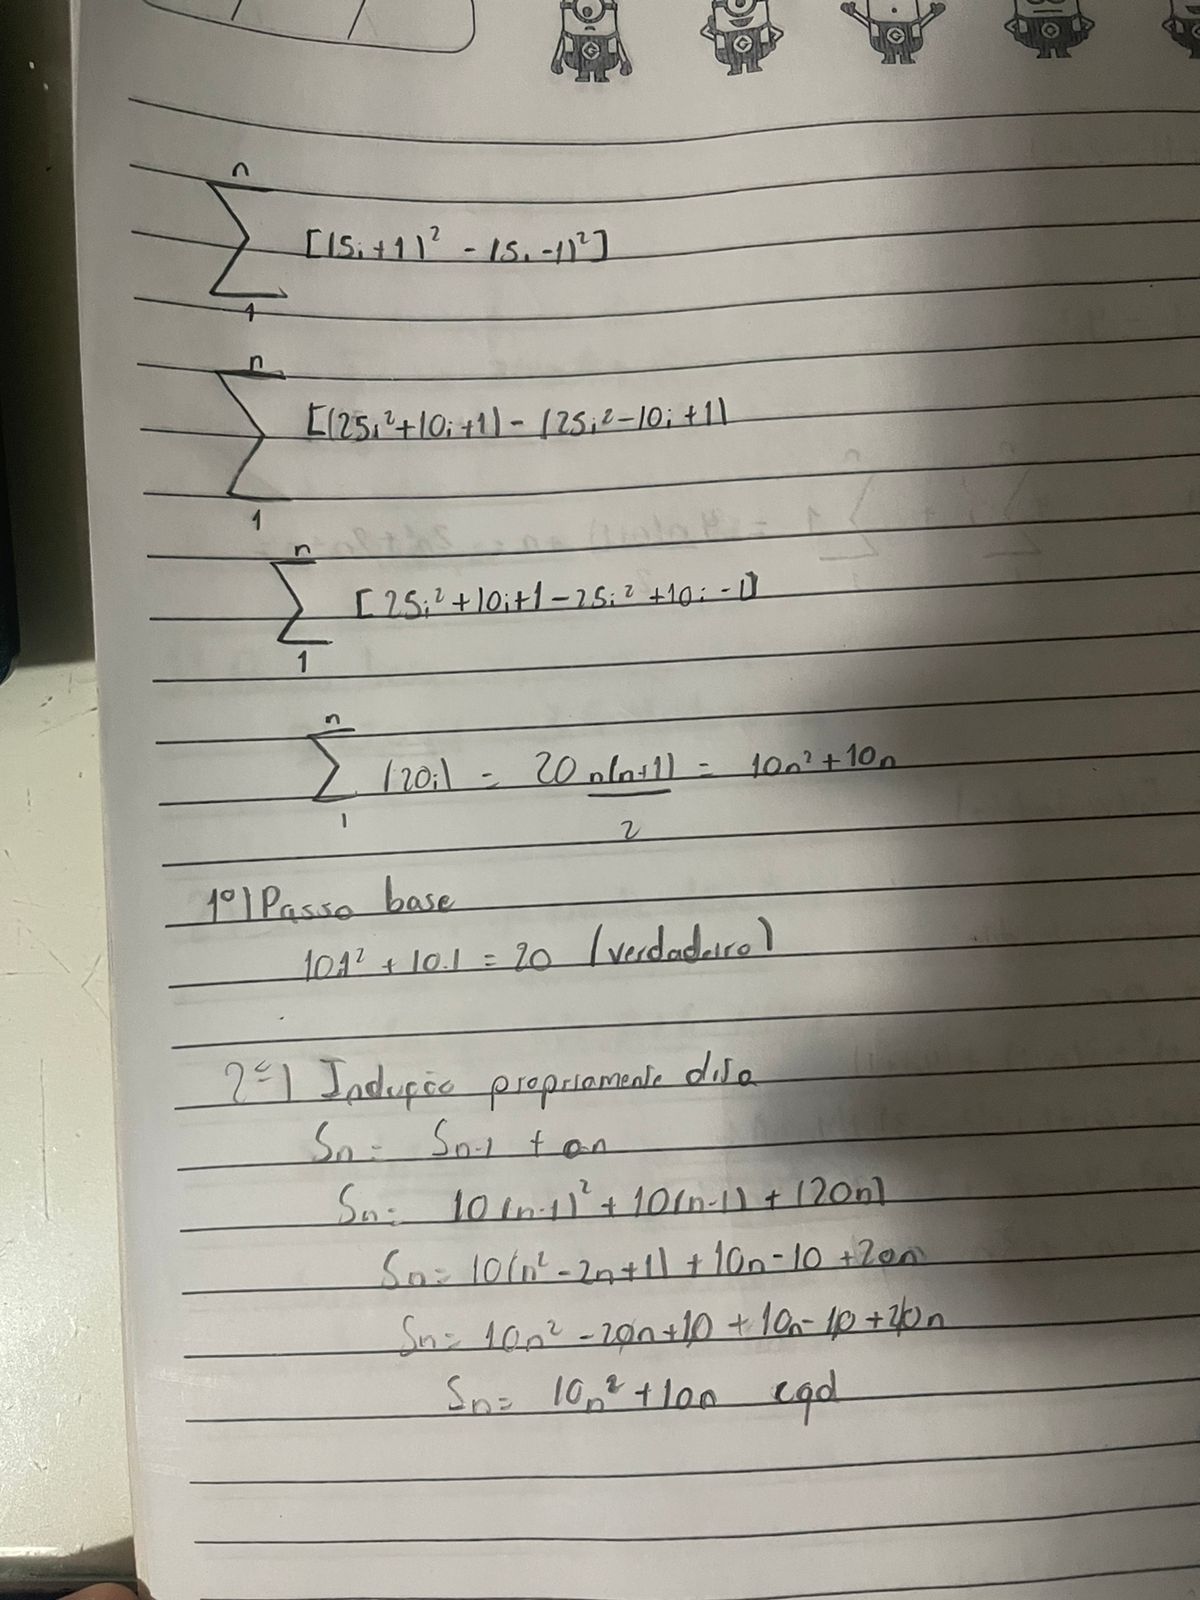 n
∑ [(5i+1)² - (5i-1)²]
1
n
∑ [(25i²+10i+1) - (25i²-10i+1)
1
n
∑ [25i²+10i+1-25i²+10i-1]
1
n
∑ (20i) = 20 n(n+1) = 10n²+10n
1 2
1º) Passo base
10.1² + 10.1 = 20 (verdadeiro)
2º) Indução propriamente dita
Sn = Sn-1 + an
Sn = 10(n-1)² + 10(n-1) + (20n)
Sn = 10(n² - 2n+1) + 10n - 10 + 20n
Sn = 10n² - 20n + 10 + 10n - 10 + 20n
Sn = 10n² + 10n cqd